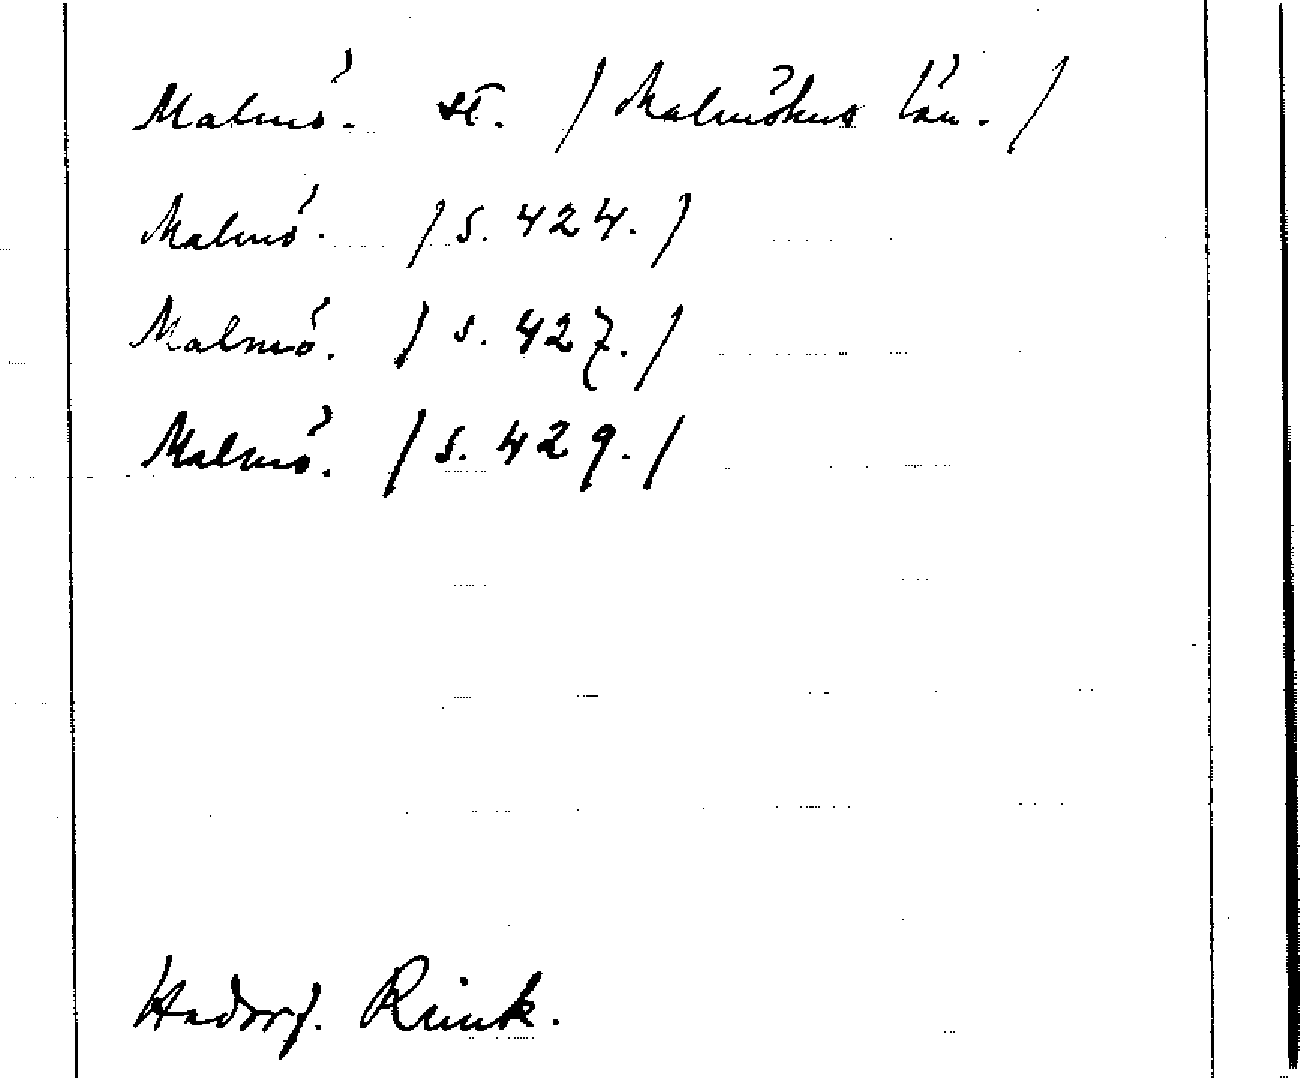 Malmö. st. / Malmöhus län. /
Malmö. / s. 424. /
Malmö. / s. 427. /
Malmö. / s. 429. /
Hadorf. Rimk.